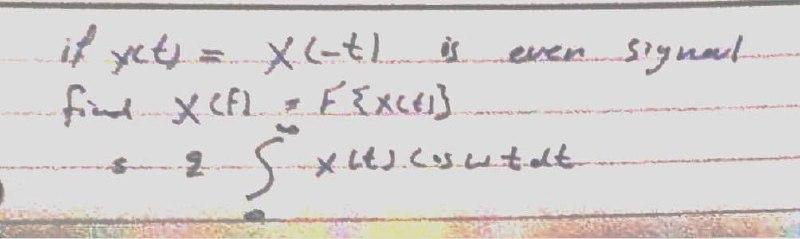 if x(t) = X(-t) is even signal
find X(f) = F{x(t)}
= 2 ∫₀^∞ x(t) cos ω t dt